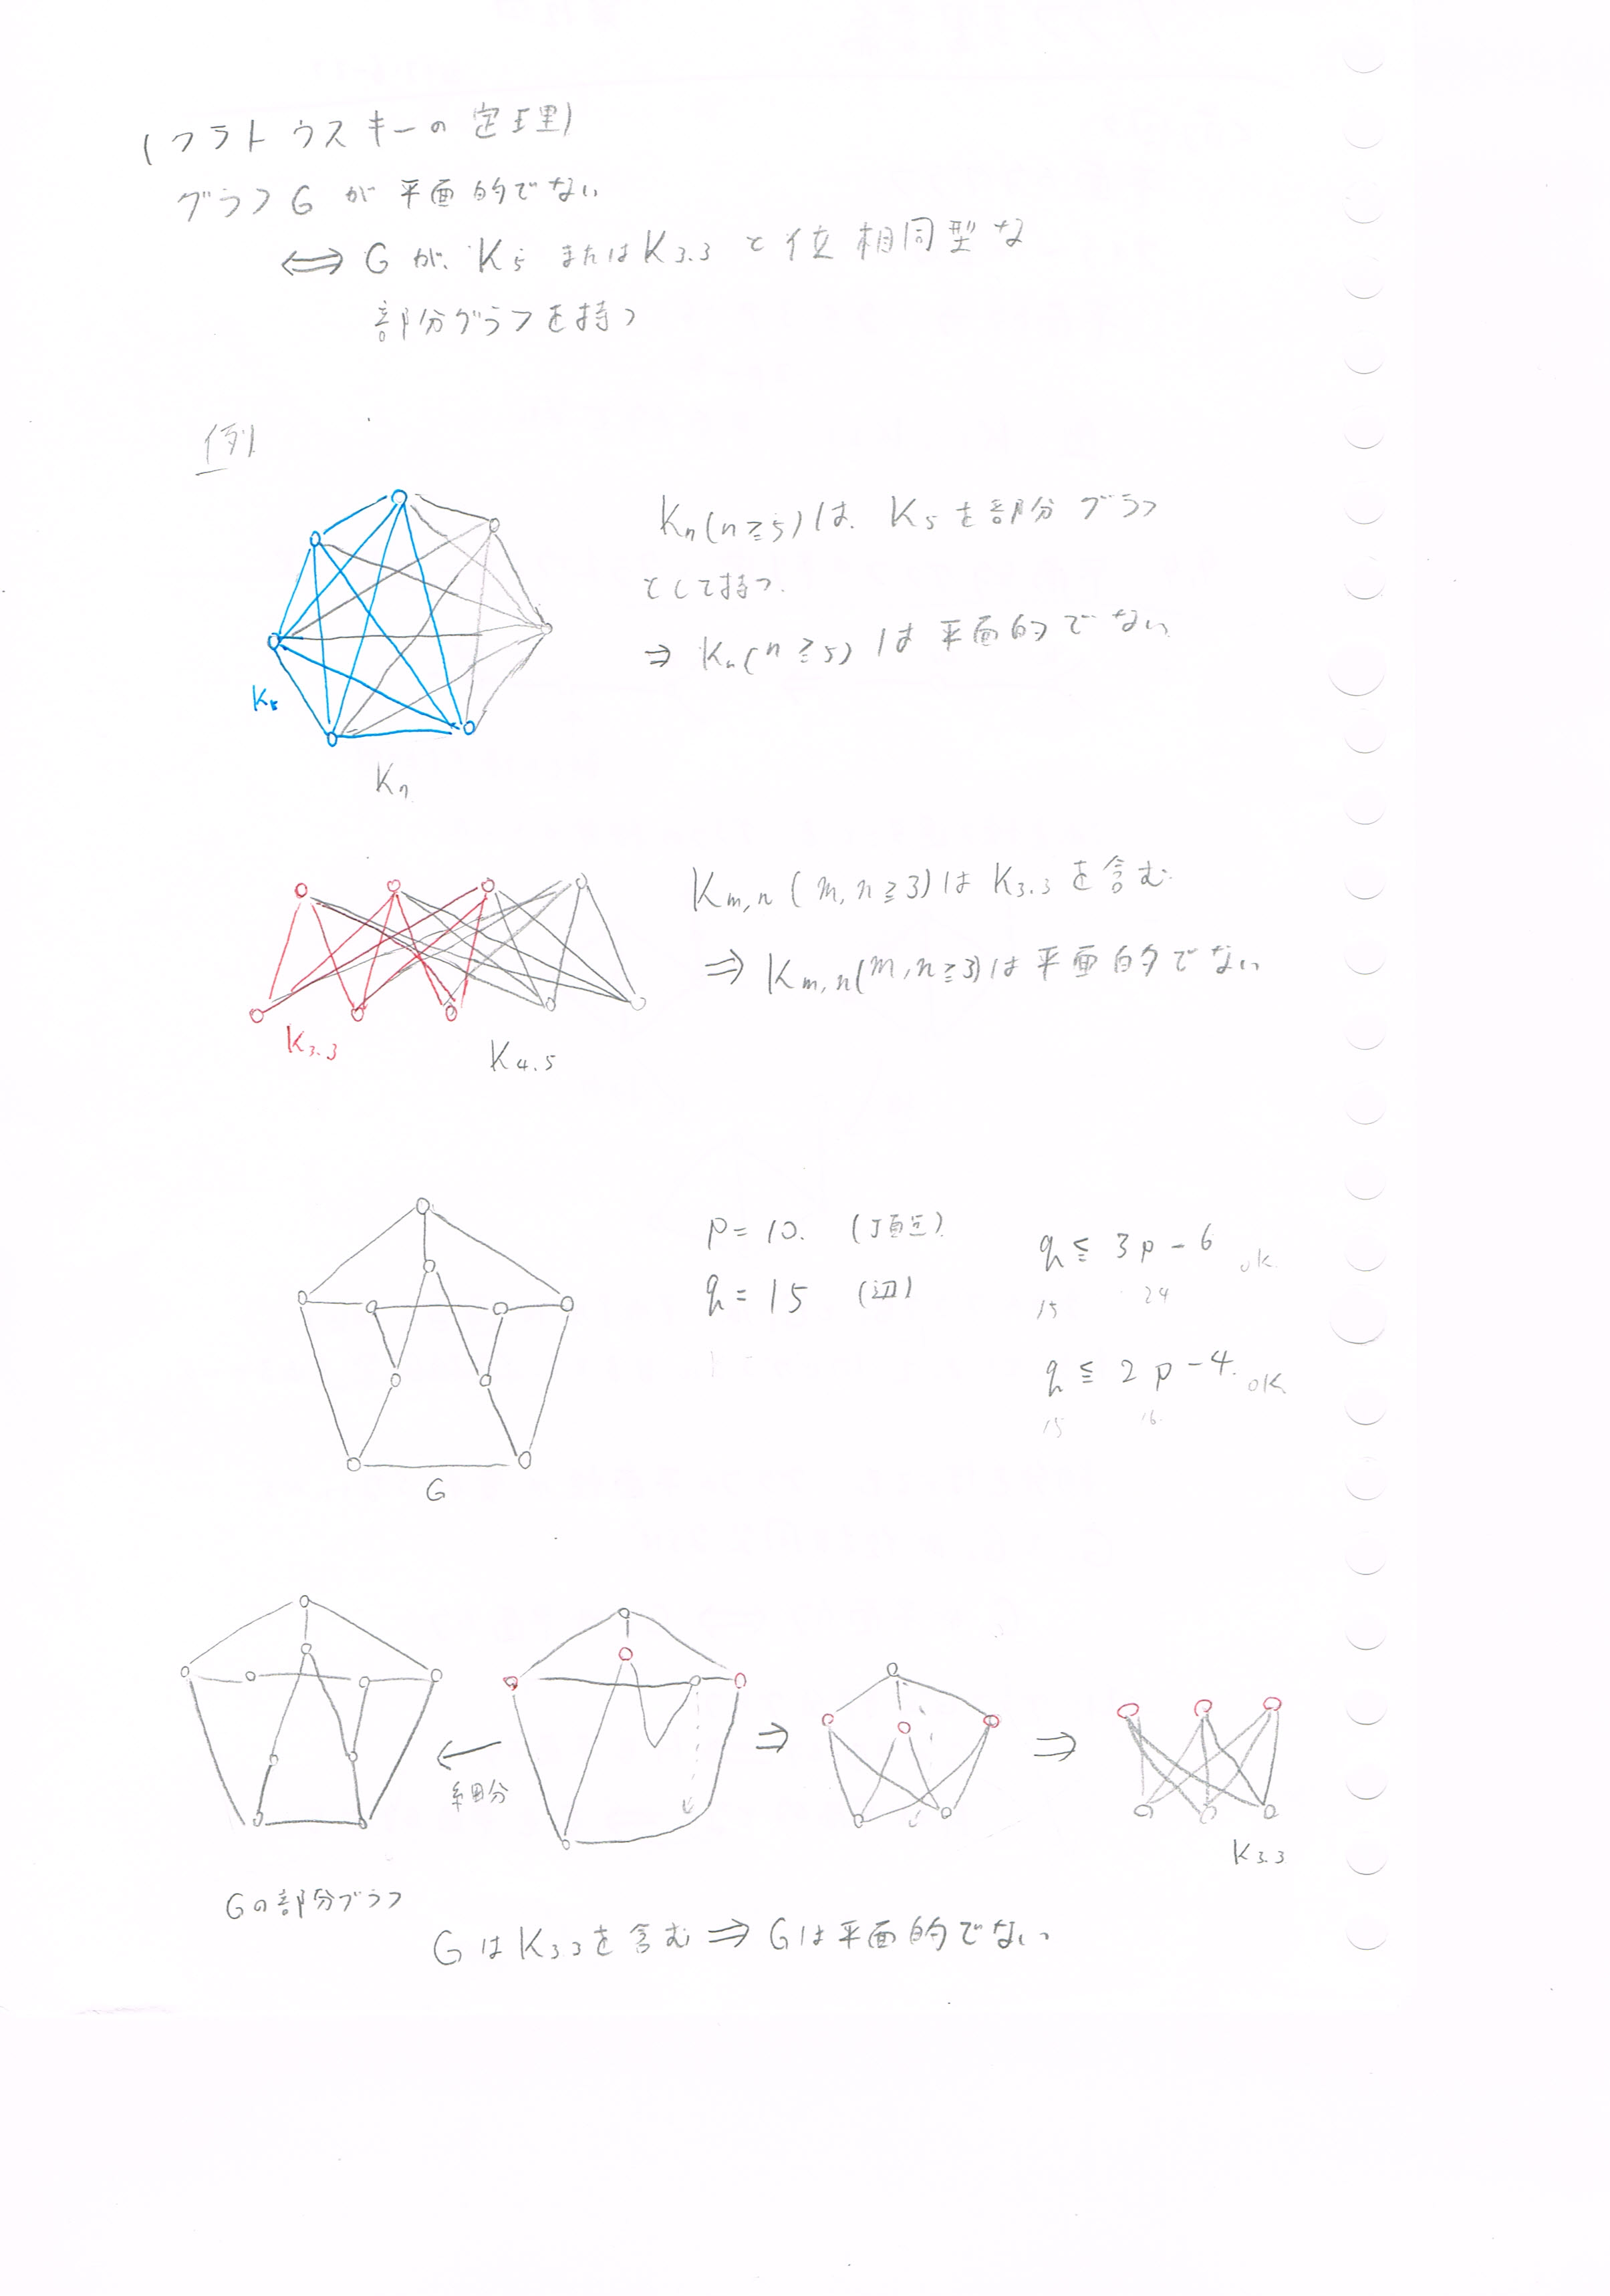 (クラトウスキーの定理)
グラフGが平面的でない
⟺ Gが、K₅またはK₃.₃と位相同型な
部分グラフを持つ
例
Kₙ(n≧5)は、K₅を部分グラフ
として持つ.
⇒ Kₙ(n≧5)は平面的でない
K₅
K₇
Km,n(m,n≧3)はK₃.₃を含む
⇒ Km,n(m,n≧3)は平面的でない
K₃.₃
K₄.₅
p=10. (頂点)
q=15 (辺)
q≦3p-6 ok
15 24
q≦2p-4. ok
15 16
G
細分
K₃.₃
Gの部分グラフ
GはK₃.₃を含む ⇒ Gは平面的でない